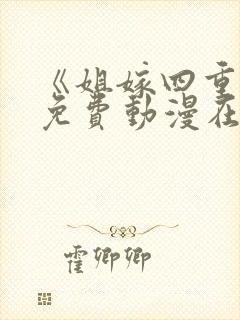 《姐嫁四重
免費動漫在
霍卿卿